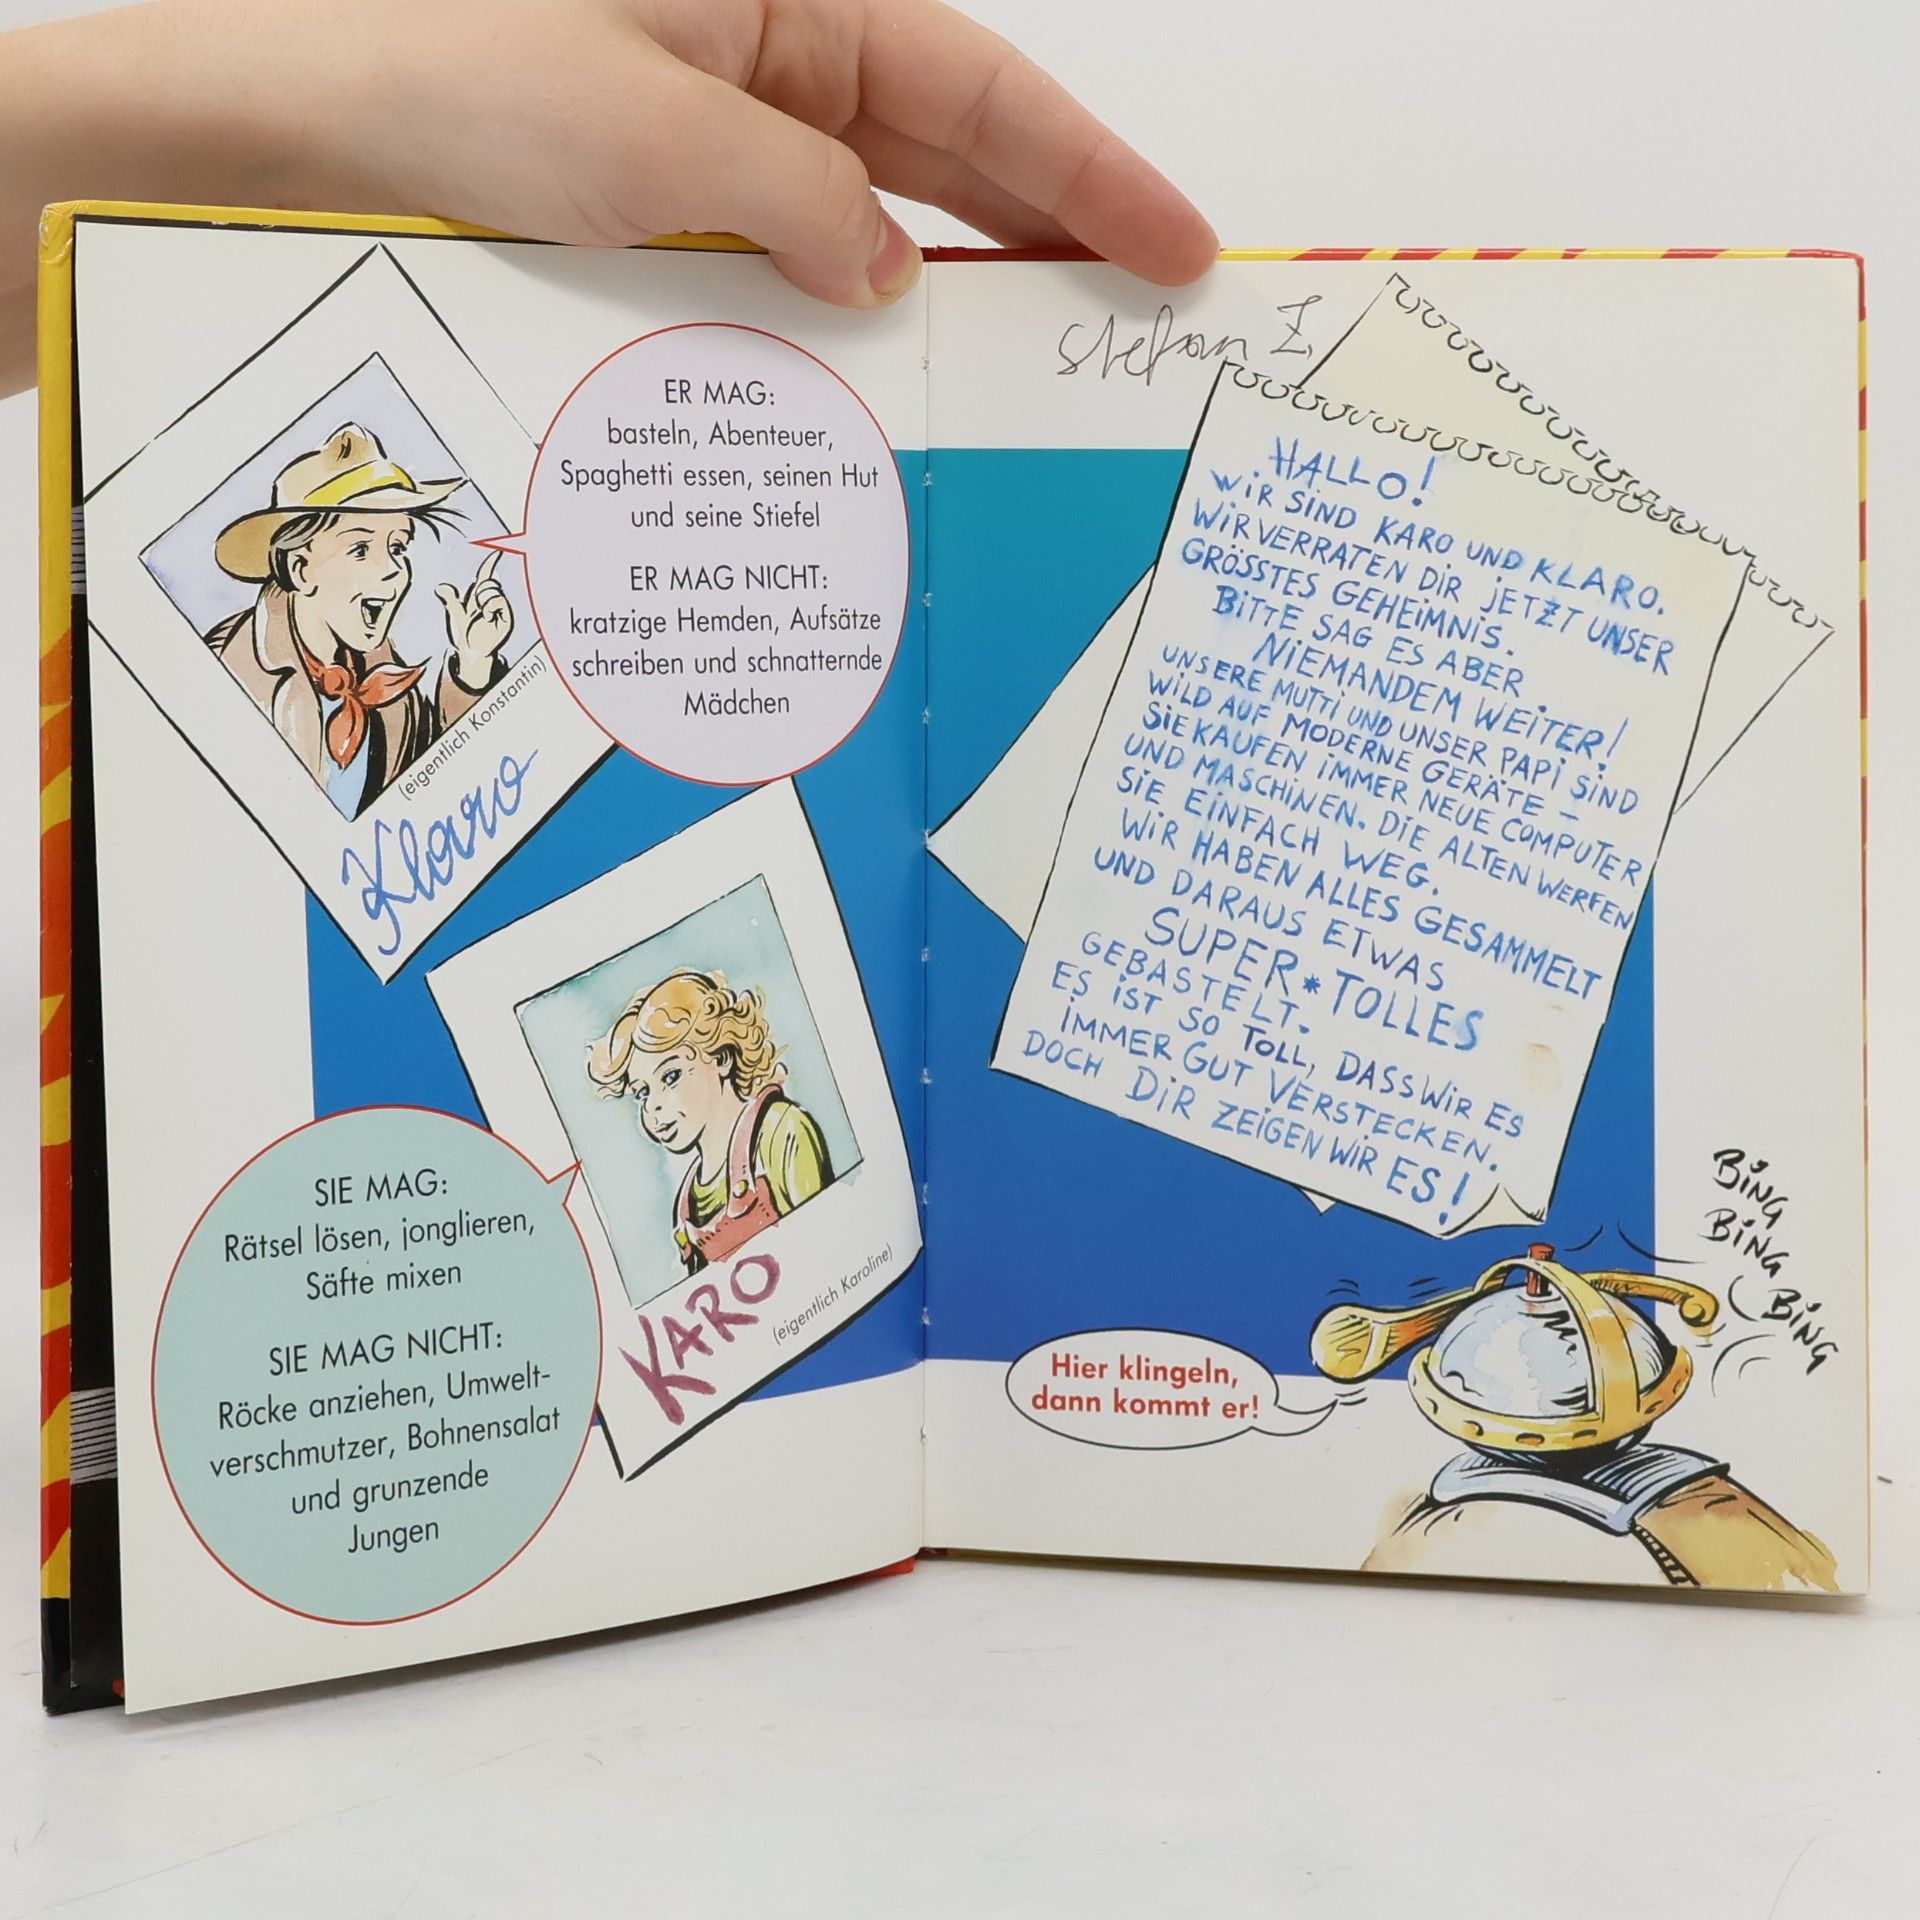 ER MAG:
basteln, Abenteuer,
Spaghetti essen, seinen Hut
und seine Stiefel
ER MAG NICHT:
kratzige Hemden, Aufsätze
schreiben und schnatternde
Mädchen
(eigentlich Konstantin)
Klaro
SIE MAG:
Rätsel lösen, jonglieren,
Säfte mixen
SIE MAG NICHT:
Röcke anziehen, Umwelt-
verschmutzer, Bohnensalat
und grunzende
Jungen
KARO
(eigentlich Karoline)
Stefan Z.
HALLO!
WIR SIND KARO UND KLARO.
WIR VERRATEN DIR JETZT UNSER
GRÖSSTES GEHEIMNIS.
BITTE SAG ES ABER
NIEMANDEM WEITER!
UNSERE MUTTI UND UNSER PAPI SIND
WILD AUF MODERNE GERÄTE –
SIE KAUFEN IMMER NEUE COMPUTER
UND MASCHINEN. DIE ALTEN WERFEN
SIE EINFACH WEG.
WIR HABEN ALLES GESAMMELT
UND DARAUS ETWAS
SUPER*TOLLES
GEBASTELT.
ES IST SO TOLL, DASS WIR ES
IMMER GUT VERSTECKEN.
DOCH DIR ZEIGEN WIR ES!
BING
BING
BING
Hier klingeln,
dann kommt er!